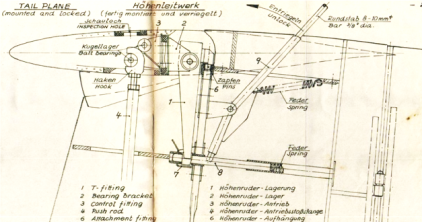 TAIL PLANE
(mounted and locked)
Höhenleitwerk
(fertig montiert und verriegelt)
Schauloch
INSPECTION HOLE
Kugellager
Ball bearings
Haken
Hook
Entriegeln
unlock
Rundstab 8-10mmϕ
Bar 3/8" dia.
Zapfen
Pins
Feder
Spring
Feder
Spring
1
2
3
4
6
7
8
9
1 T-fitting
2 Bearing bracket
3 Control fitting
4 Push rod
6 Attachment fitting
1 Höhenruder-Lagerung
2 Höhenruder-Lager
3 Höhenruder-Antrieb
4 Höhenruder-Antriebsstoßstange
6 Höhenruder-Aufhängung